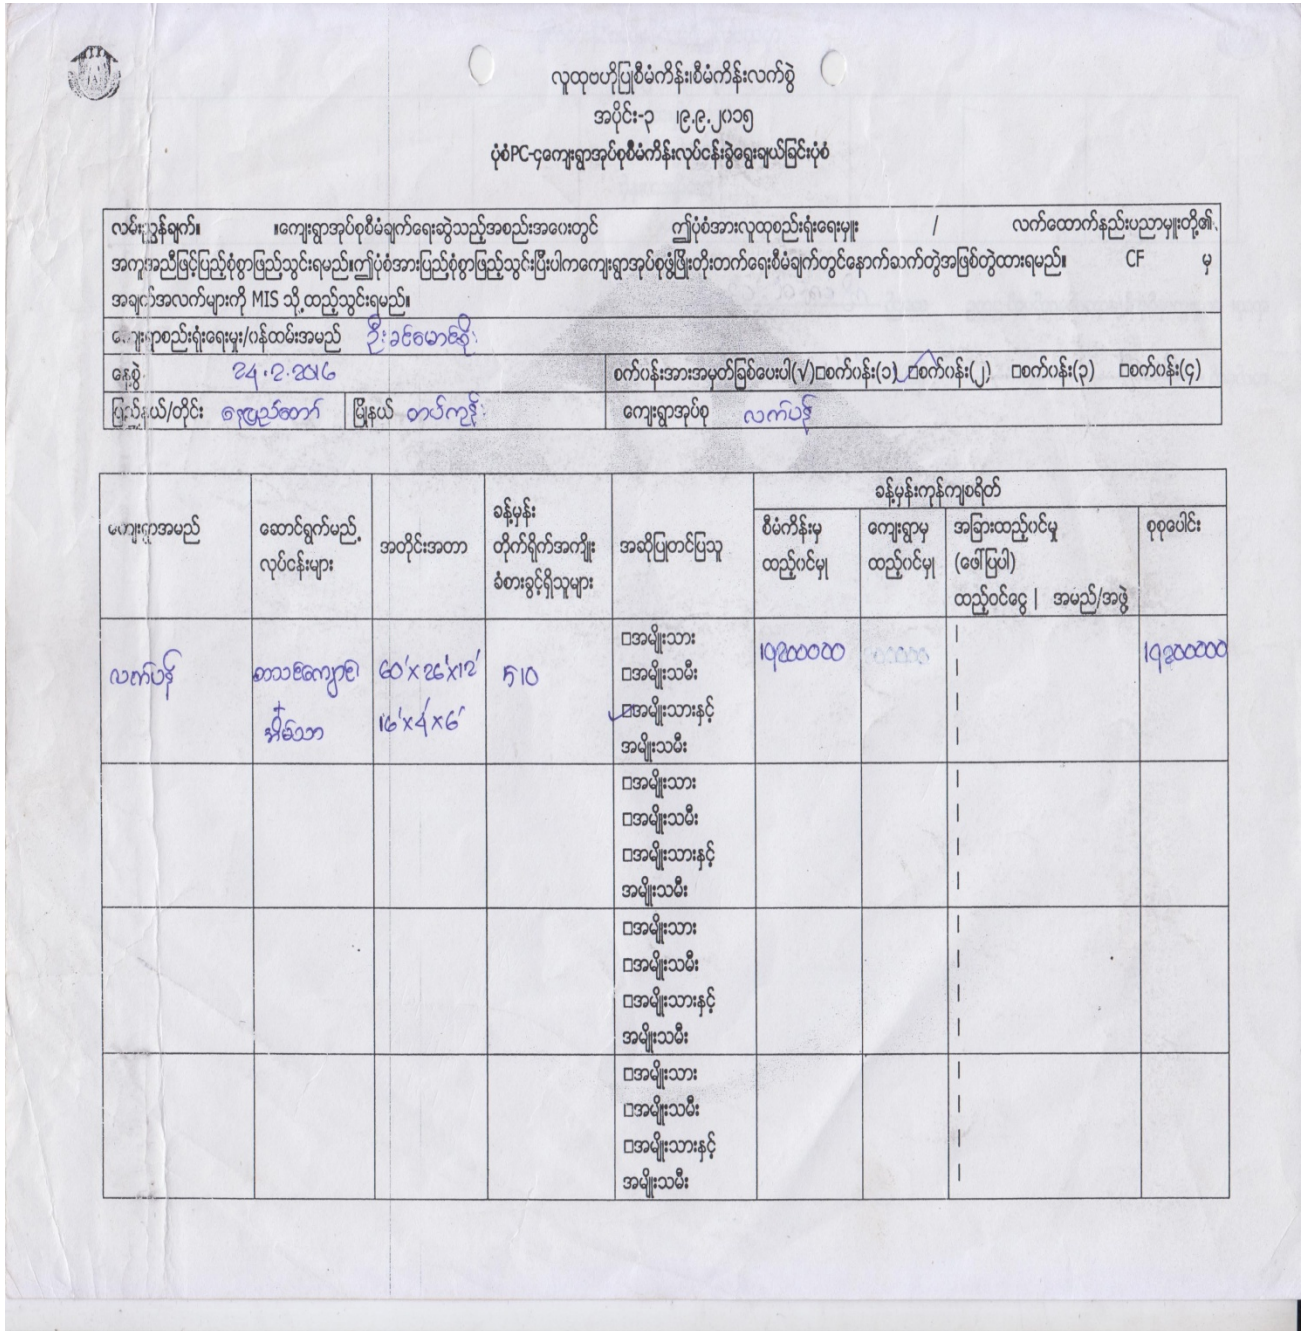 လူထုဗဟိုပြုစီမံကိန်း၊စီမံကိန်းလက်စွဲ
အပိုင်း-၃ ၊၉.၉.၂၀၁၅
ပုံစံPC-၄ကျေးရွာအုပ်စုစီမံကိန်းလုပ်ငန်းခွဲရွေးချယ်ခြင်းပုံစံ
လမ်းညွှန်ချက်။ ။ကျေးရွာအုပ်စုစီမံချက်ရေးဆွဲသည့်အစည်းအဝေးတွင် ဤပုံစံအားလူထုစည်းရုံးရေးမှူး / လက်ထောက်နည်းပညာမှူးတို့၏
အကူအညီဖြင့်ပြည့်စုံစွာဖြည့်သွင်းရမည်။ဤပုံစံအားပြည့်စုံစွာဖြည့်သွင်းပြီးပါကကျေးရွာအုပ်စုဖွံ့ဖြိုးတိုးတက်ရေးစီမံချက်တွင်နောက်ဆက်တွဲအဖြစ်တွဲထားရမည်။ CF မှ
အချက်အလက်များကို MIS သို့ထည့်သွင်းရမည်။
ကျေးရွာစည်းရုံးရေးမှူး/ဝန်ထမ်းအမည် ဦးခင်မောင်စိုး
နေ့စွဲ 24.2.2016 စက်ဝန်းအားအမှတ်ခြစ်ပေးပါ(√)□စက်ဝန်း(၁) □စက်ဝန်း(၂) □စက်ဝန်း(၃) □စက်ဝန်း(၄)
ပြည်နယ်/တိုင်း နေပြည်တော် မြို့နယ် တပ်ကုန်း ကျေးရွာအုပ်စု လက်ပန်
ခန့်မှန်းကုန်ကျစရိတ်
ကျေးရွာအမည် ဆောင်ရွက်မည့် လုပ်ငန်းများ အတိုင်းအတာ ခန့်မှန်း တိုက်ရိုက်အကျိုး ခံစားခွင့်ရှိသူများ အဆိုပြုတင်ပြသူ စီမံကိန်းမှ ထည့်ဝင်မှု ကျေးရွာမှ ထည့်ဝင်မှု အခြားထည့်ဝင်မှု (ဖော်ပြပါ) ထည့်ဝင်ငွေ | အမည်/အဖွဲ့ စုစုပေါင်း
လက်ပန် စာသင်ကျောင်း 60'x26'x12' 510 □အမျိုးသား
□အမျိုးသမီး
+ အိမ်သာ 16'x4'x6' □အမျိုးသားနှင့်
အမျိုးသမီး
□အမျိုးသား
□အမျိုးသမီး
□အမျိုးသားနှင့်
အမျိုးသမီး
□အမျိုးသား
□အမျိုးသမီး
□အမျိုးသားနှင့်
အမျိုးသမီး
□အမျိုးသား
□အမျိုးသမီး
□အမျိုးသားနှင့်
အမျိုးသမီး